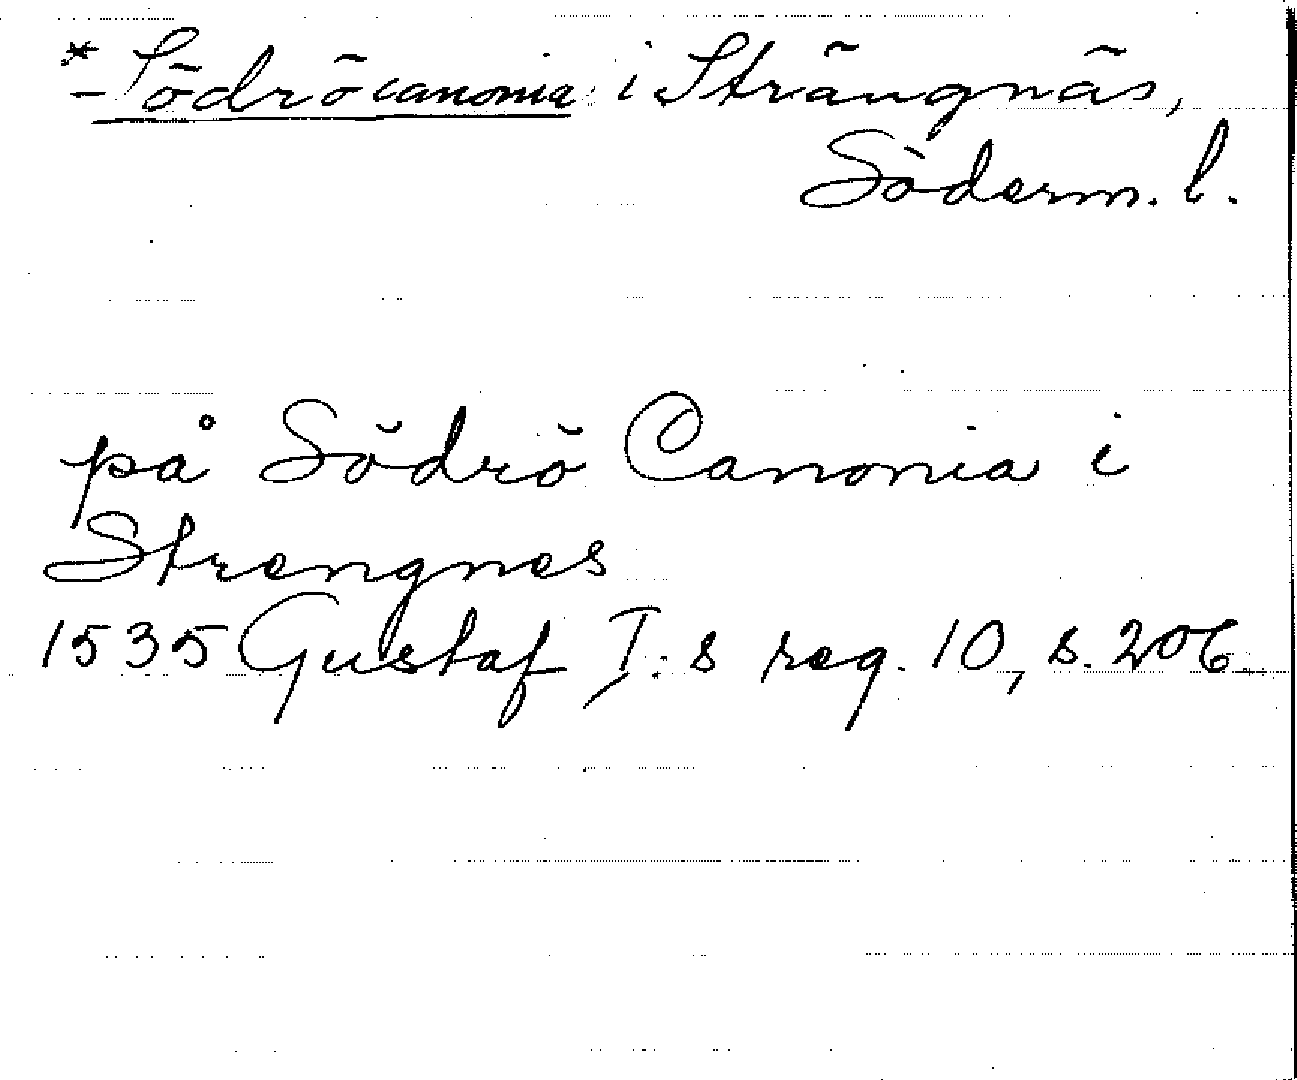 * Södrö canonia i Strängnäs,
Söderm. l.
på Södrö Canonia i
Strengnes
1535 Gustaf I:s reg. 10, s. 206.